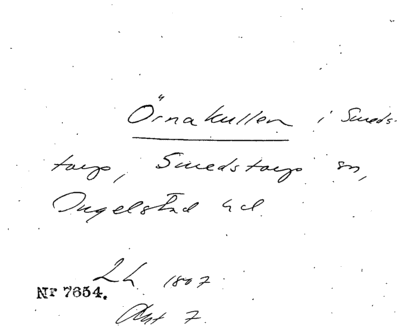 Örnakullen i Smeds-
torp, Smedstorps sn,
Ingelstad hd
Lh 1807
Nr 7654.
Akt 7